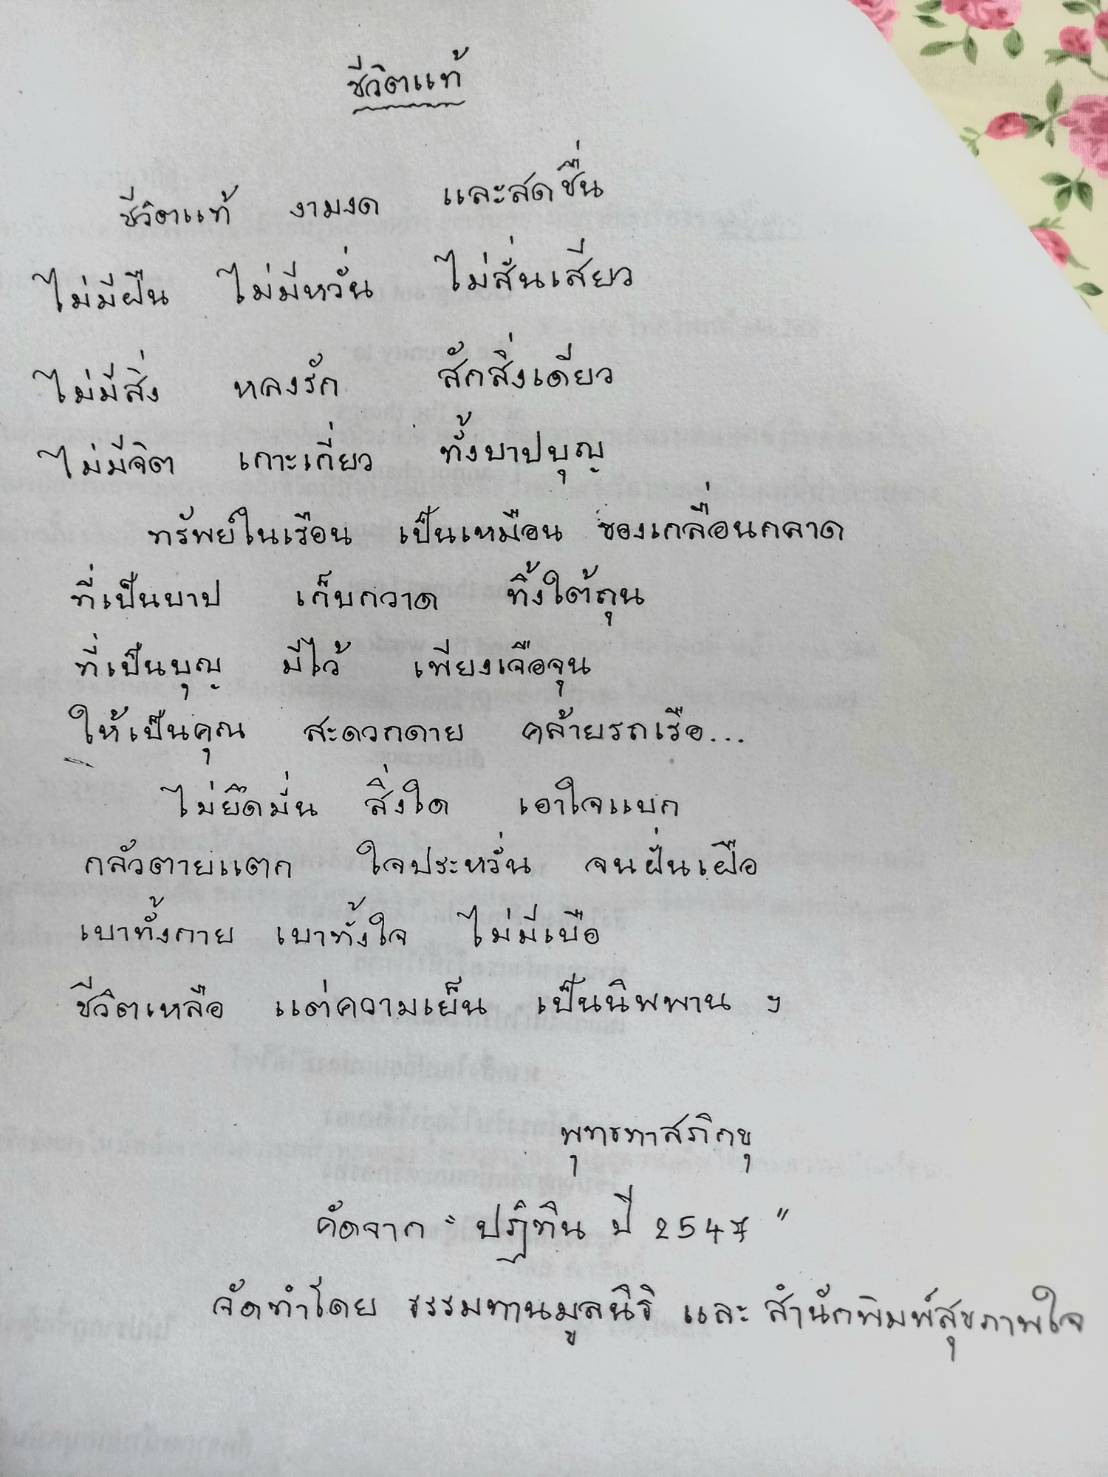 ชีวิตแท้
ชีวิตแท้ งามงด และสดชื่น
ไม่มีฝืน ไม่มีหวั่น ไม่สั่นเสียว
ไม่มีสิ่ง หลงรัก สักสิ่งเดียว
ไม่มีจิต เกาะเกี่ยว ทั้งบาปบุญ
ทรัพย์ในเรือน เป็นเหมือน ของเกลื่อนกลาด
ที่เป็นบาป เก็บกวาด ทิ้งใต้ถุน
ที่เป็นบุญ มีไว้ เพียงเจือจุน
ให้เป็นคุณ สะดวกดาย คล้ายรถเรือ...
ไม่ยึดมั่น สิ่งใด เอาใจแบก
กลัวตายแตก ใจประหวั่น จนฝั่นเฝือ
เบาทั้งกาย เบาทั้งใจ ไม่มีเบือ
ชีวิตเหลือ แต่ความเย็น เป็นนิพพาน ฯ
พุทธทาสภิกขุ
คัดจาก " ปฏิทิน ปี 2547 "
จัดทำโดย ธรรมทานมูลนิธิ และ สำนักพิมพ์สุขภาพใจ